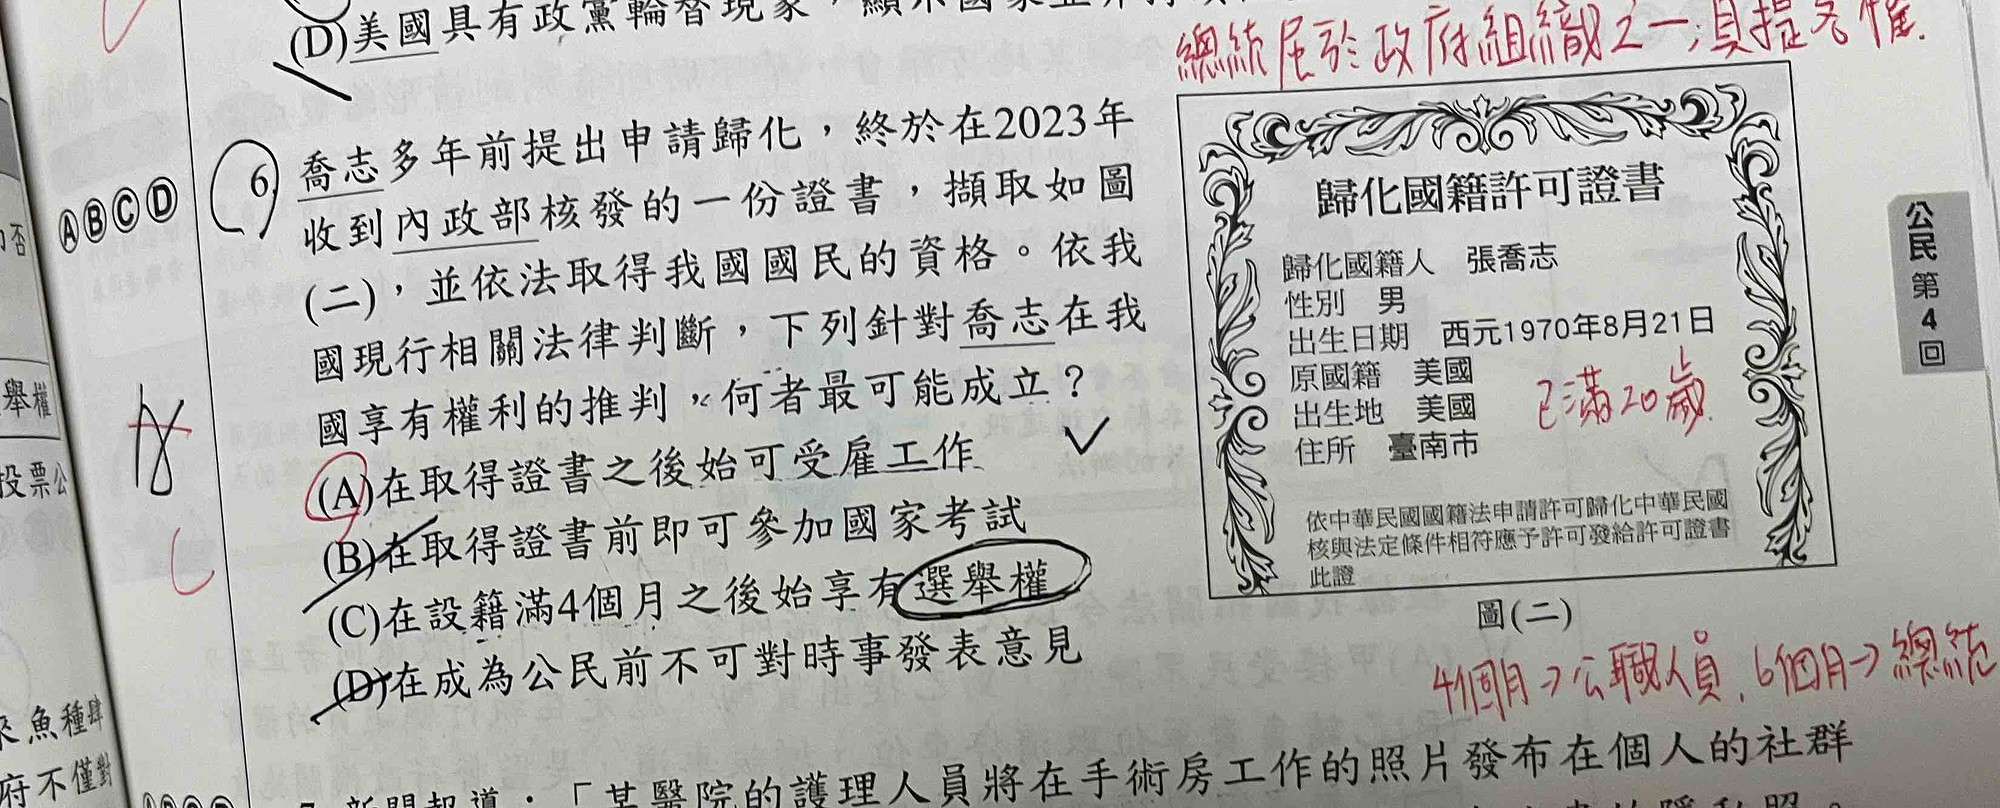 (D)美國具有政黨輪替現象，顯示國家並非
總統屬於政府組織之一，負提名權.
6 喬志多年前提出申請歸化，終於在2023年
收到內政部核發的一份證書，擷取如圖
(二)，並依法取得我國國民的資格。依我
國現行相關法律判斷，下列針對喬志在我
國享有權利的推判，何者最可能成立？
(A)在取得證書之後始可受雇工作
(B)在取得證書前即可參加國家考試
(C)在設籍滿4個月之後始享有選舉權
(D)在成為公民前不可對時事發表意見
ⒶⒷⒸⒹ
A
C
歸化國籍許可證書
歸化國籍人 張喬志
性別 男
出生日期 西元1970年8月21日
原國籍 美國
出生地 美國
住所 臺南市
已滿20歲
依中華民國國籍法申請許可歸化中華民國
核與法定條件相符應予許可發給許可證書
此證
圖(二)
4個月→公職人員，6個月→總統
公民第4回
7 新聞報導：「某醫院的護理人員將在手術房工作的照片發布在個人的社群
否
舉權
投票公
魚種肆
府不僅對